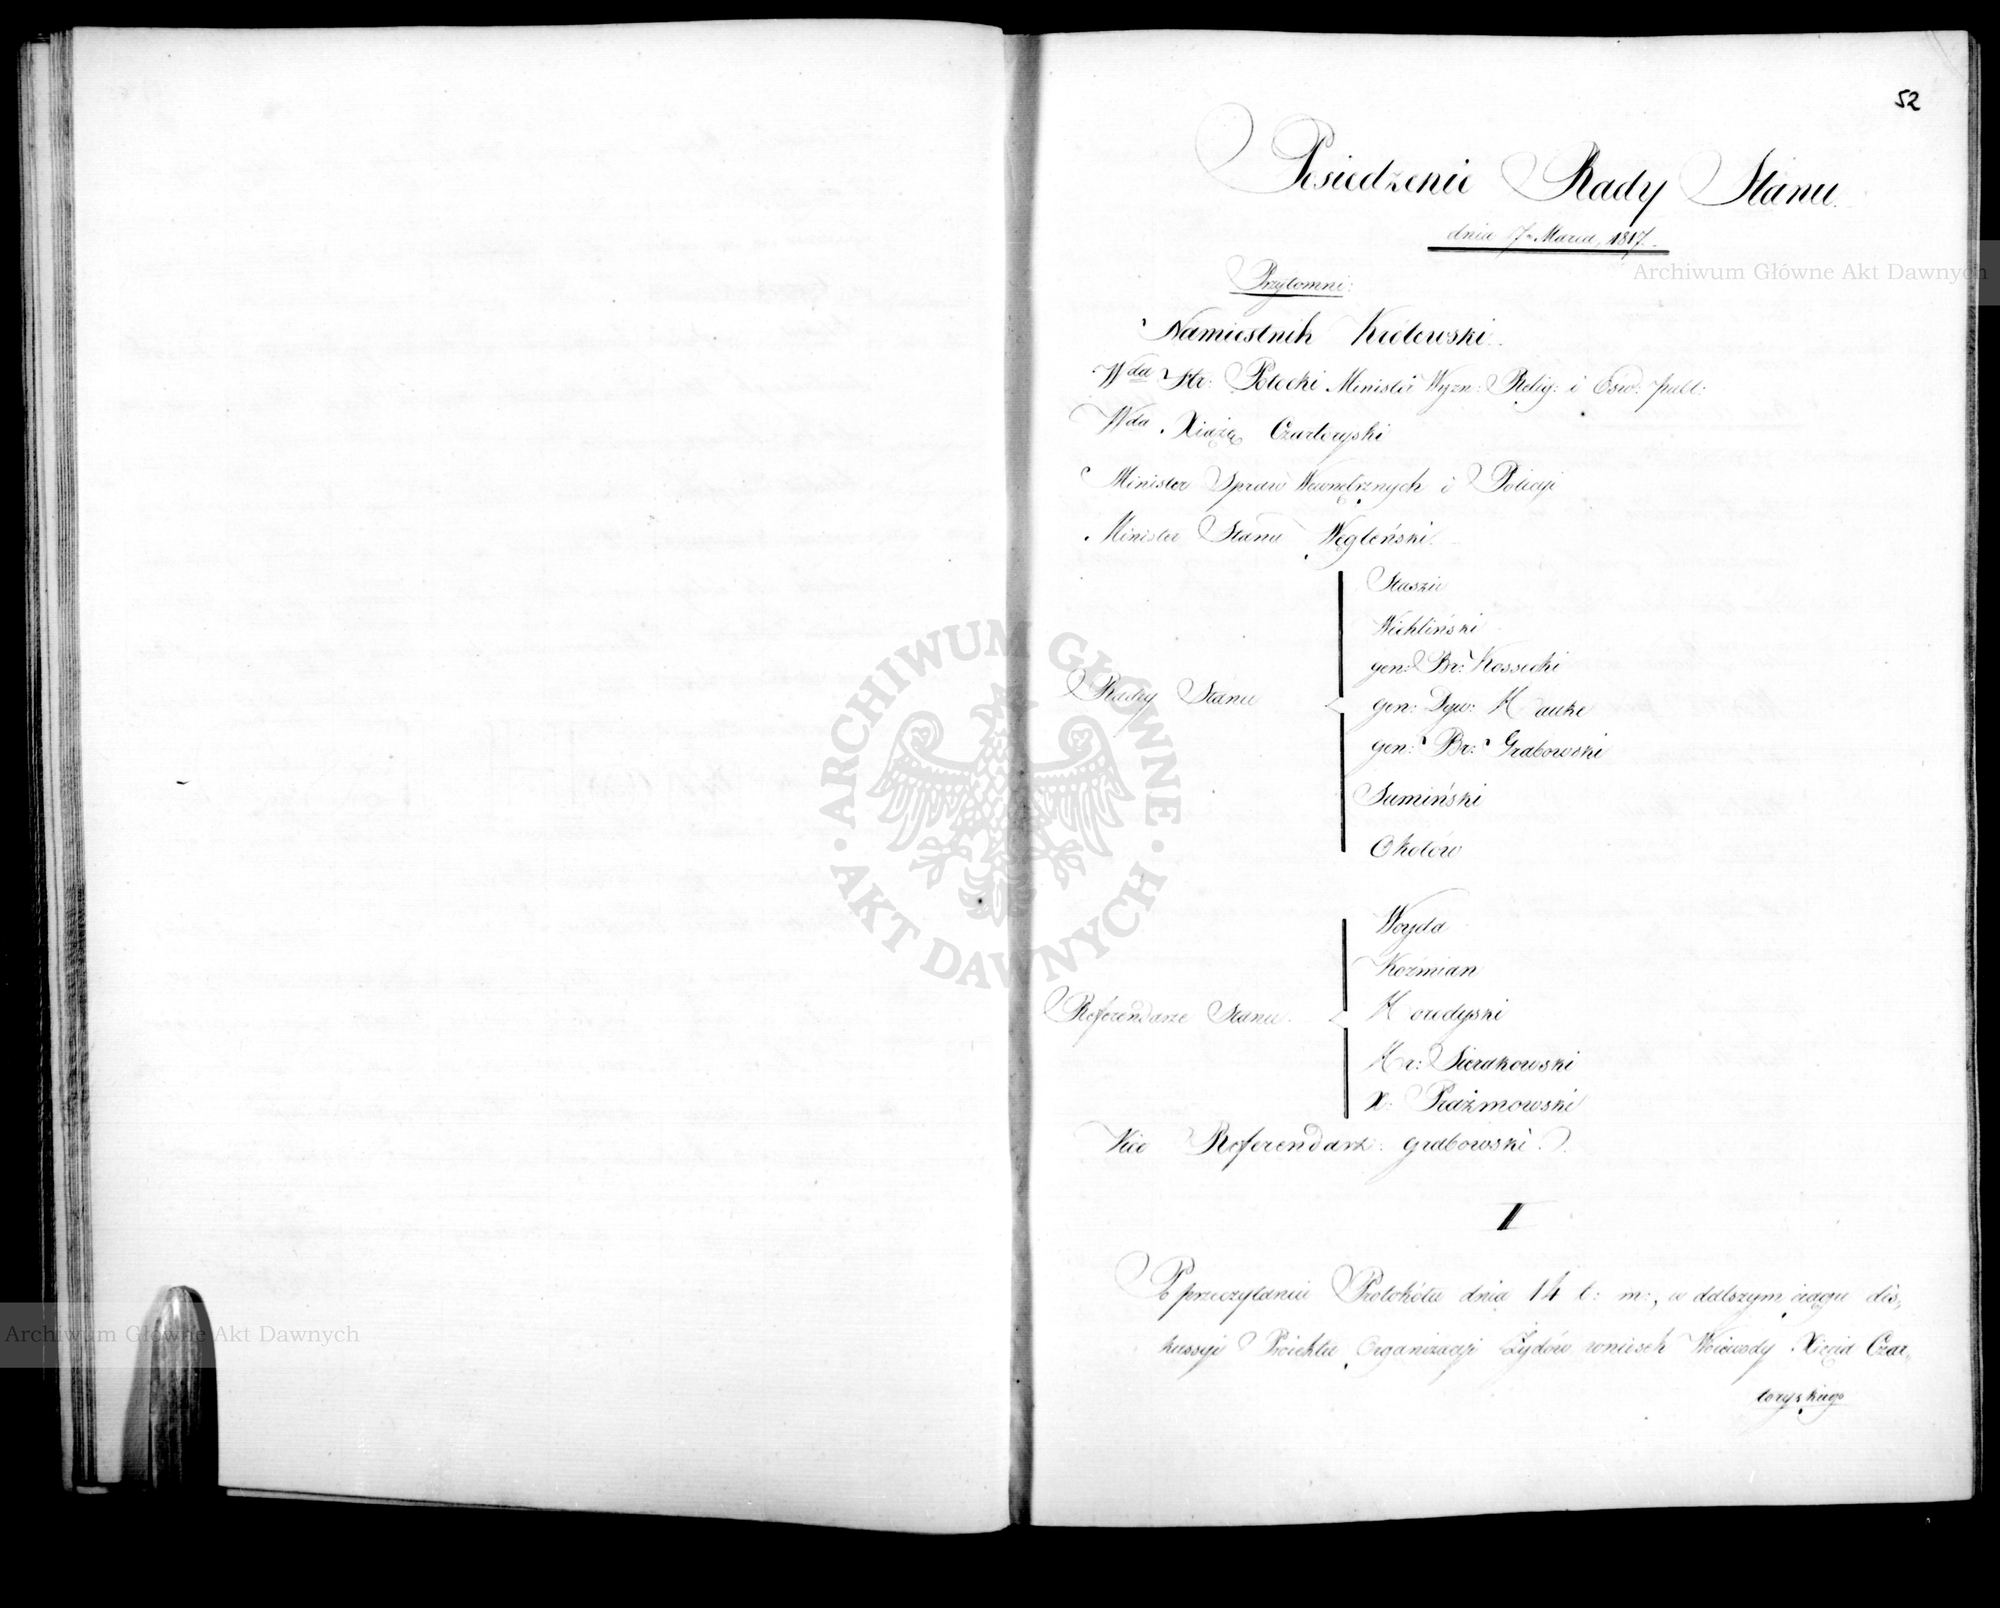 52
Posiedzenie Rady Stanu
dnia 17. Marca, 1817.
Archiwum Główne Akt Dawnych
Przytomni:
Namiestnik Królewski.
Wda Str: Potocki Minister Wyzn: Relig: i Ośw: publ:
Wda Xiążę Czartoryski
Minister Spraw Wewnętrznych i Policyi
Minister Stanu Węgleński.
Radcy Stanu
Staszic
Wichliński
gen: Br: Kossecki
gen: Dyw: Hauke
gen: Br: Grabowski
Sumiński
Okołów
Referendarze Stanu
Woyda
Koźmian
Horodyski
Hr: Sierakowski
X: Prażmowski
Vice Referendarz: Grabowski.
II
Po przeczytaniu Protokółu dnia 14 t: m:, w dalszym ciągu dis-
kussyi Proiektu Organizacyi Żydów wniosek Woiewody Xięcia Czar-
toryskiego
ARCHIWUM GŁÓWNE
AKT DAWNYCH
Archiwum Główne Akt Dawnych